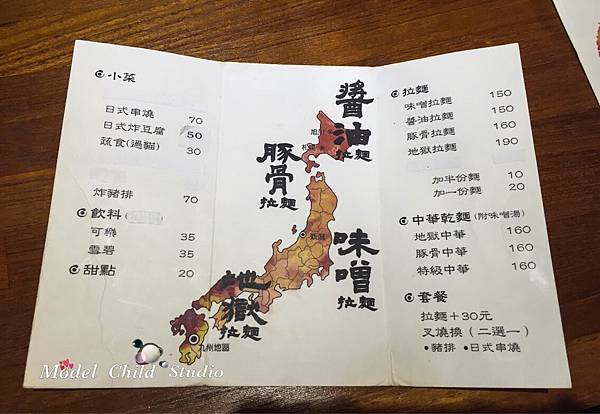 小菜
日式串燒 70
日式炸豆腐 50
蔬食(過貓) 30
炸豬排 70
飲料(
可樂 35
雪碧 35
甜點 20
醬油拉麵
豚骨拉麵
味噌拉麵
地獄拉麵
旭川
札幌
九州地區
拉麵
味噌拉麵 150
醬油拉麵 150
豚骨拉麵 160
地獄拉麵 190
加半份麵 10
加一份麵 20
中華乾麵(附味噌湯)
地獄中華 160
豚骨中華 160
特級中華 160
套餐
拉麵＋30元
叉燒換（二選一）
•豬排 •日式串燒
Model Child Studio